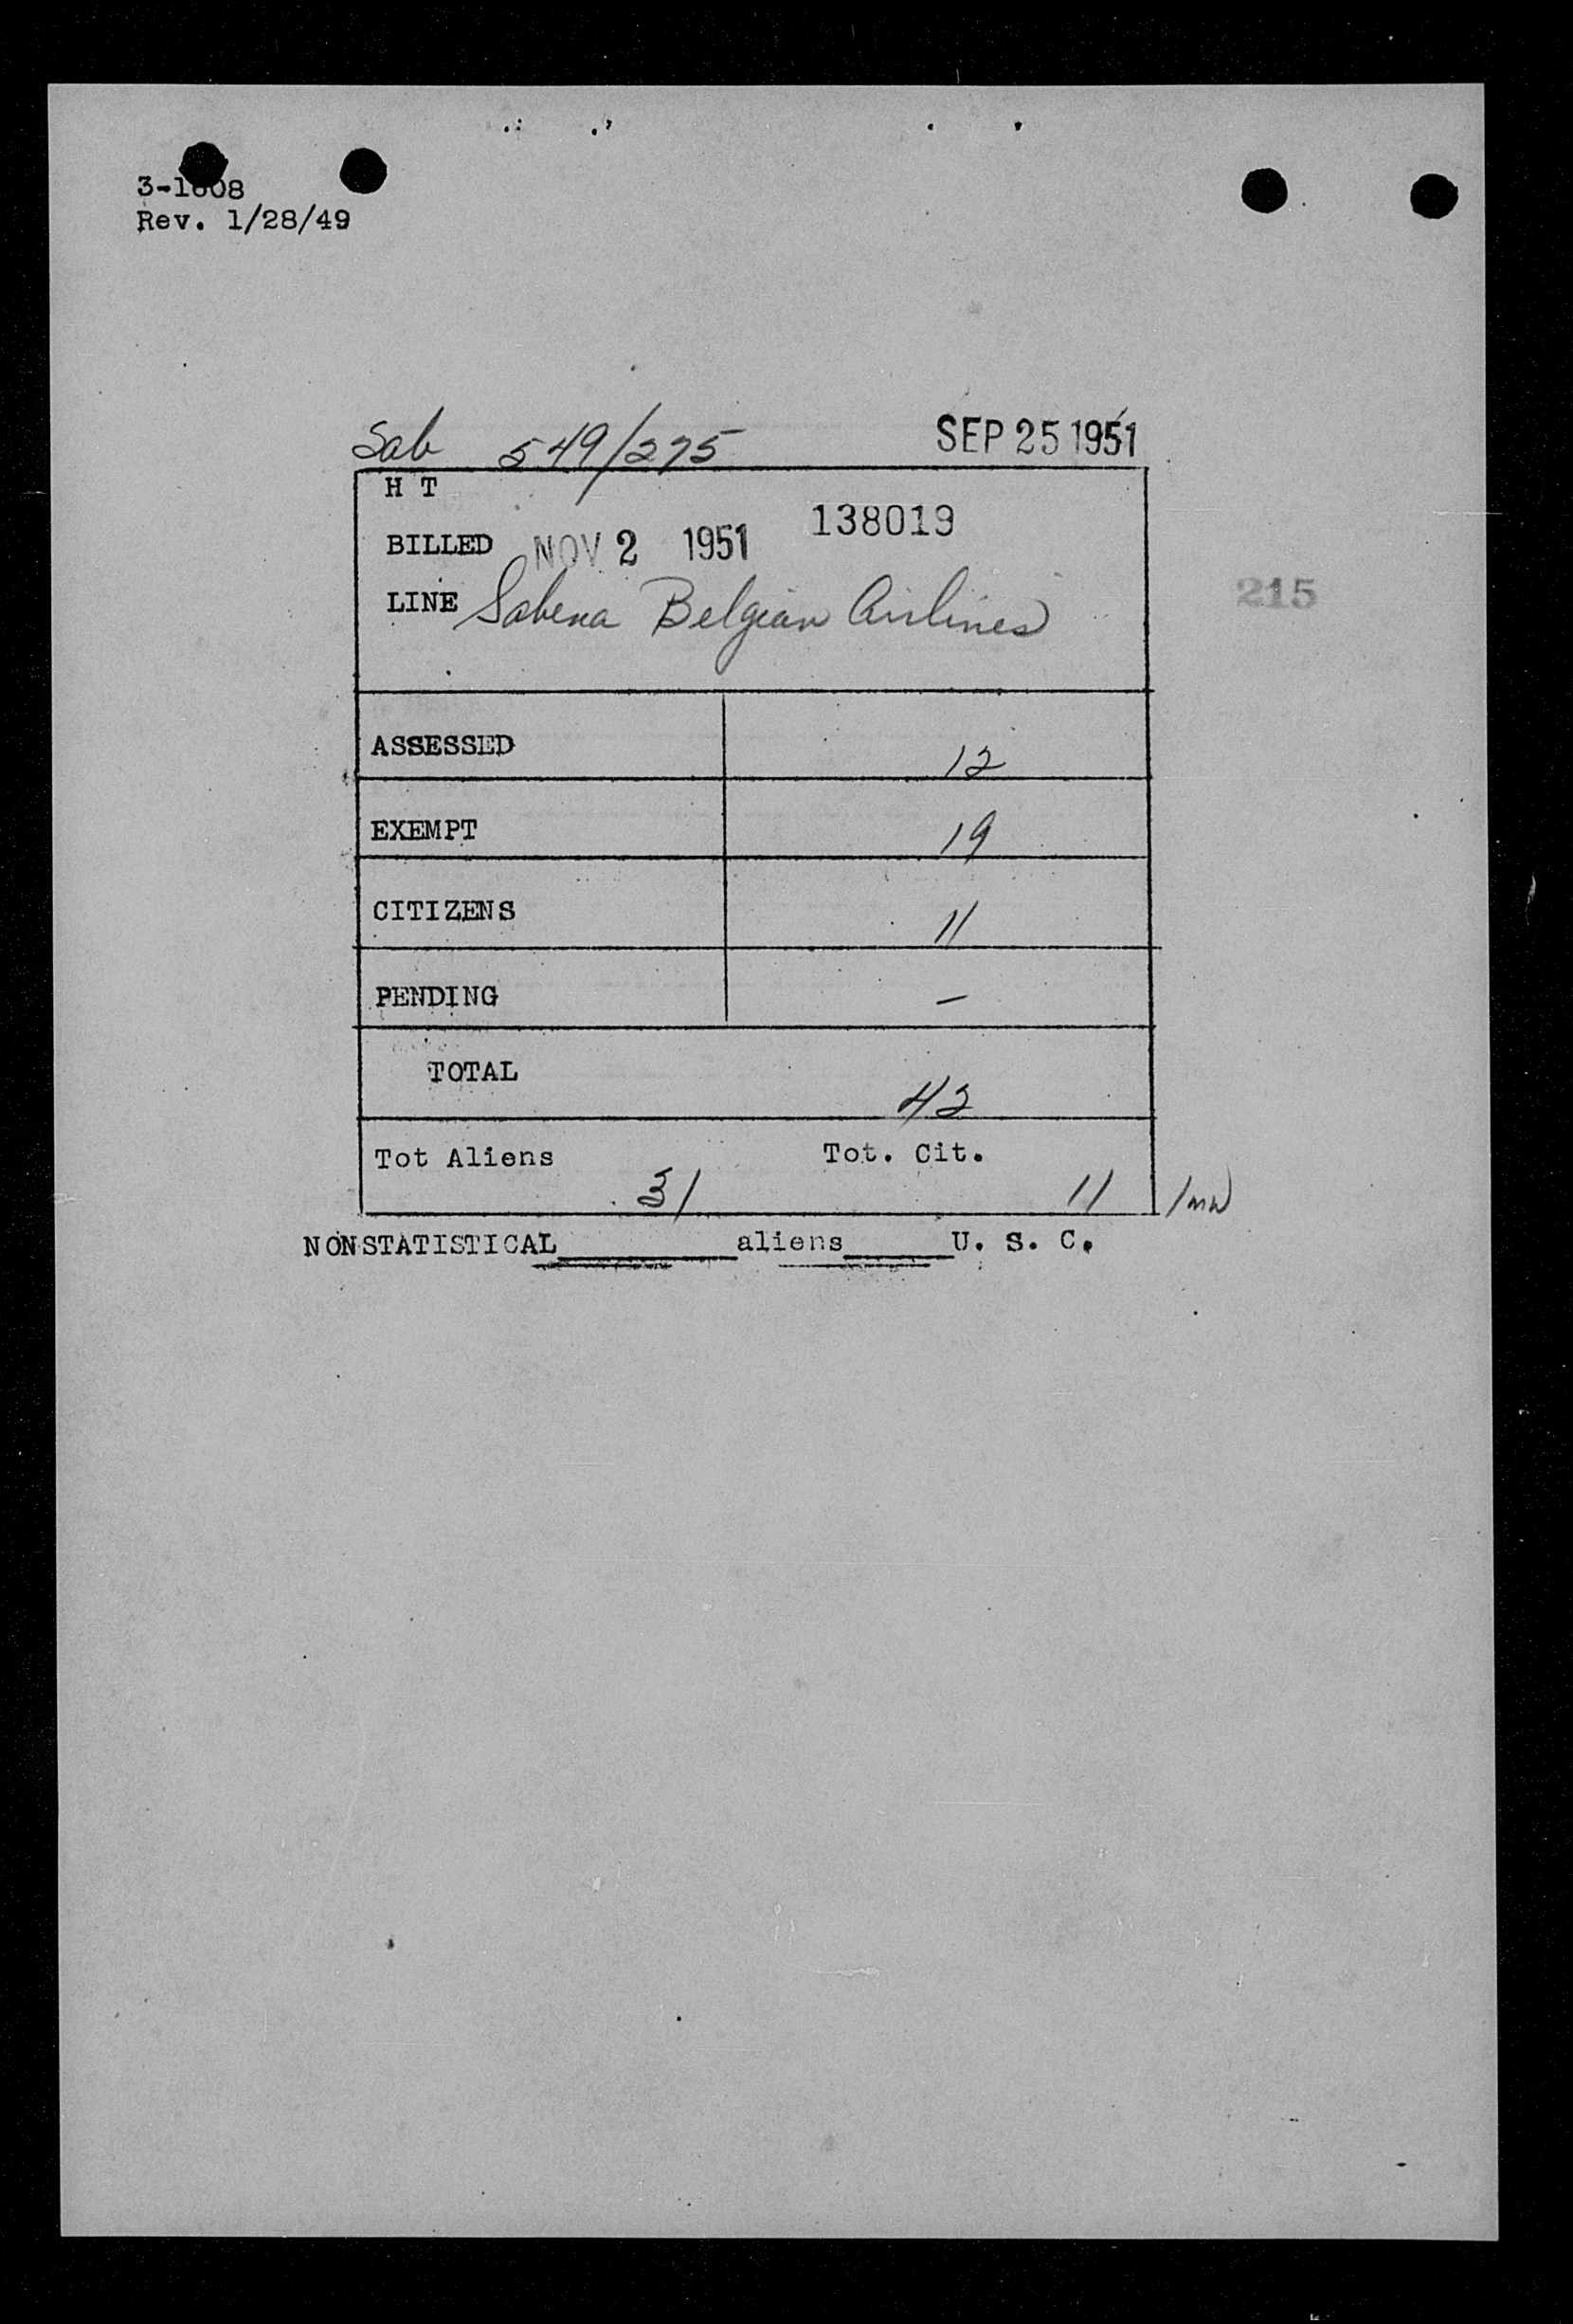 3-1608
Rev. 1/28/49
Sab 549/275 SEP 25 1951
H T
BILLED NOV 2 1951 138019
LINE Sabena Belgian Airlines
215
ASSESSED 12
EXEMPT 19
CITIZENS 11
PENDING —
TOTAL 42
Tot Aliens 31 Tot. Cit. 11
NONSTATISTICAL______aliens____U. S. C.